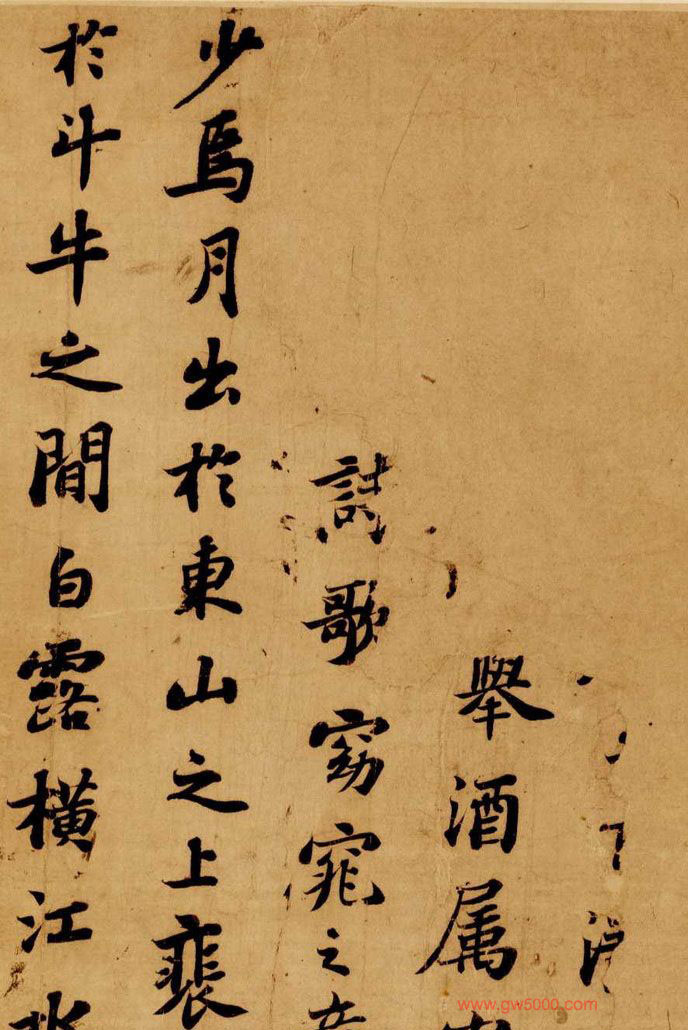 舉酒属
詩歌窈窕之
少焉月出於東山之上裴
於斗牛之間白露橫江
www.gw5000.com